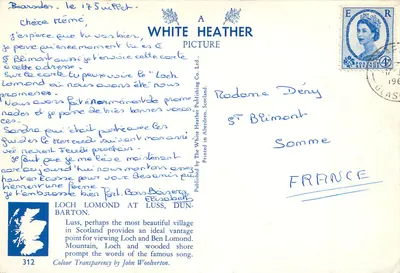 Bearsden. le 17 Juillet.
Chère Mémé,
J'espère que tu vas bien,
je pense qu'en ce moment tu es à
St Blimont aussi je t'envoie cette carte
à cette adresse.
Sur la carte tu peux voir le "Loch
Lomond" où nous avons été nous
promener.
Nous avons fait énormément de prome
nades et je passe de très bonnes vacan
ces.
Sandra qui était partie avec les
guides le Mercredi suivant mon arri
vée revient Jeudi prochain.
Il faut que je me lève maintenant
car aujourd'hui nous
en Ecosse pour
une ferme.
Je t'embrasse bien fort. Bons Baisers
Elisabeth
A
WHITE HEATHER
PICTURE
Published by The White Heather Publishing Co. Ltd.
Printed in Aberdeen, Scotland.
E R
4D
196
Madame Dény
St Blimont
Somme
FRANCE
LOCH LOMOND AT LUSS, DUN-
BARTON.
Luss, perhaps the most beautiful village
in Scotland provides an ideal vantage
point for viewing Loch and Ben Lomond.
Mountain, Loch and wooded shore
prompt the words of the famous song.
312
Colour Transparency by John Woolverton.